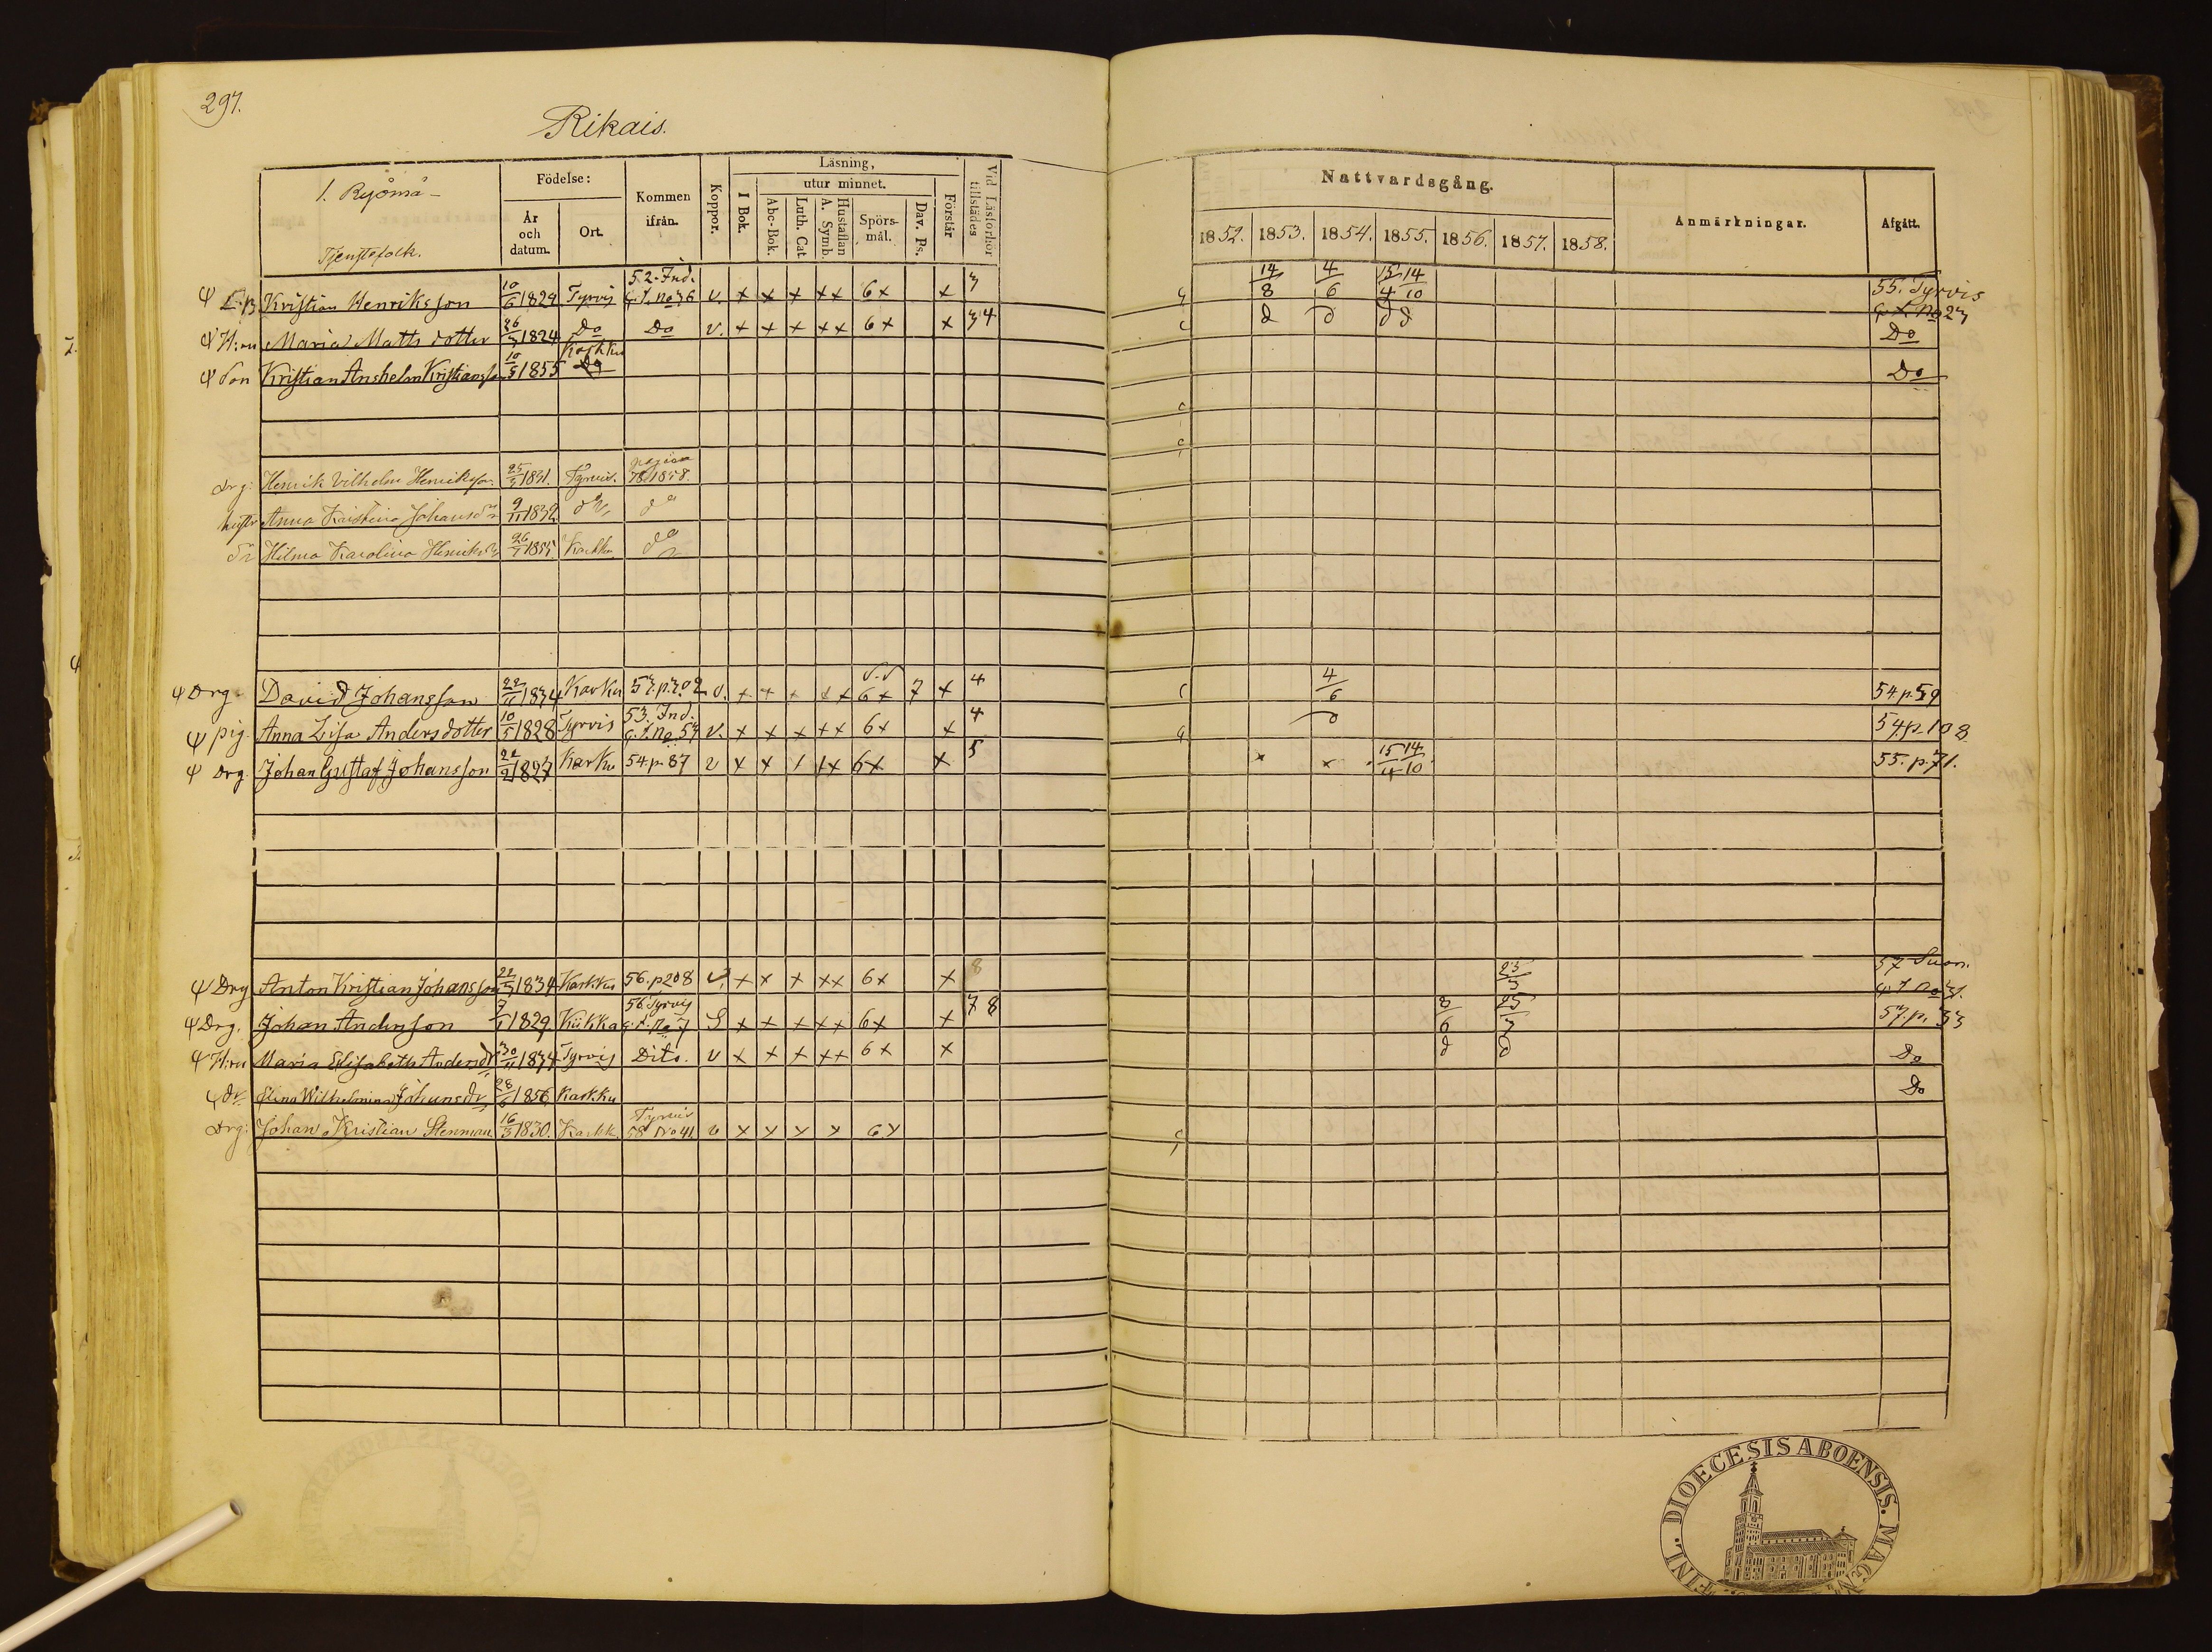 297.
Rikais.
1. Ryömä
Tjenstefolk.
Födelse:
År och datum.
Ort.
Kommen ifrån.
Koppor.
Läsning,
I Bok.
utur minnet.
Abc-Bok.
Luth. Cat
Hustaflan A. Symb.
Spörs-mål.
Dav. Ps.
Förstår
Vid Läsförhör tillstädes
Nattvardsgång.
1852. 1853. 1854. 1855. 1856. 1857. 1858.
Anmärkningar.
Afgått.
Kristian Henriksson 10/6 1829 Tyrvis 52. Ind. No 36 v. + + + ++ 6+ + 3 14/8 4/6 15/4 14/10 55. Tyrvis No 23
H:ru Maria Matts dotter 26/3 1824 Do Do v. + + + ++ 6+ + 34 d d d d Do
Son Kristian Anshelm Kristiansson 10/5 1855 Karkku Do Do
drg: Henrik Vilhelm Henriksson 25/5 1831. Tyrvis. pagina 78/1858.
hustr Anna Kristina Johansdr 9/11 1832 do do
dr Hilma Karolina Henriksdr 26/1 1855 Karkku do
Drg David Johansson 22/11 1834 Karku 53. p. 202 v. + + + ++ 6+ 7 + 4 4/6 54. p. 59
pig. Anna Lisa Anders dotter 10/5 1828 Tyrvis 53. Ind. No 54 v. + + + ++ 6+ + 4 d 54 p. 108
Drg. Johan Gustaf Johansson 1827 Karku 54. p. 87 v + + + ++ 6+ + 5 15/4 14/10 55. p. 71.
Drg Anton Kristian Johansson 1834 Karkku 56. p 208 v. + + + ++ 6+ + 8 25/3 57 Suon.
Drg. Johan Andersson 7/1 1829 Kiikka 56. Tyrvis No 7 S + + + ++ 6+ + 7 8 8/6 25/3 57. p. 33
H:ru Maria Elisabeth Andersdr 30/11 1834 Tyrvis Dito. v + + + ++ 6+ + d d Do
dr Elina Wilhelmina Johansdr 28/6 1856 Karkku Do
Drg: Johan Kristian Stenman 16/3 1830. Karkk. Tyrvis 58 No 41 v + + + + 6+
FINL. DIOECESIS ABOENSIS. MAGN